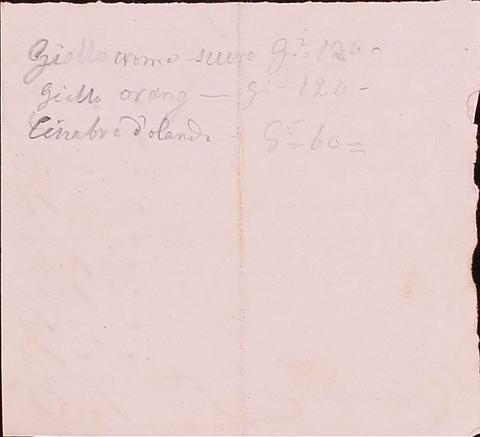 Giallo cromo scuro Gⁱ = 120 -
Giallo orang — Gi - 120 -
Cinabro d'olanda - Gⁱ = 60 =